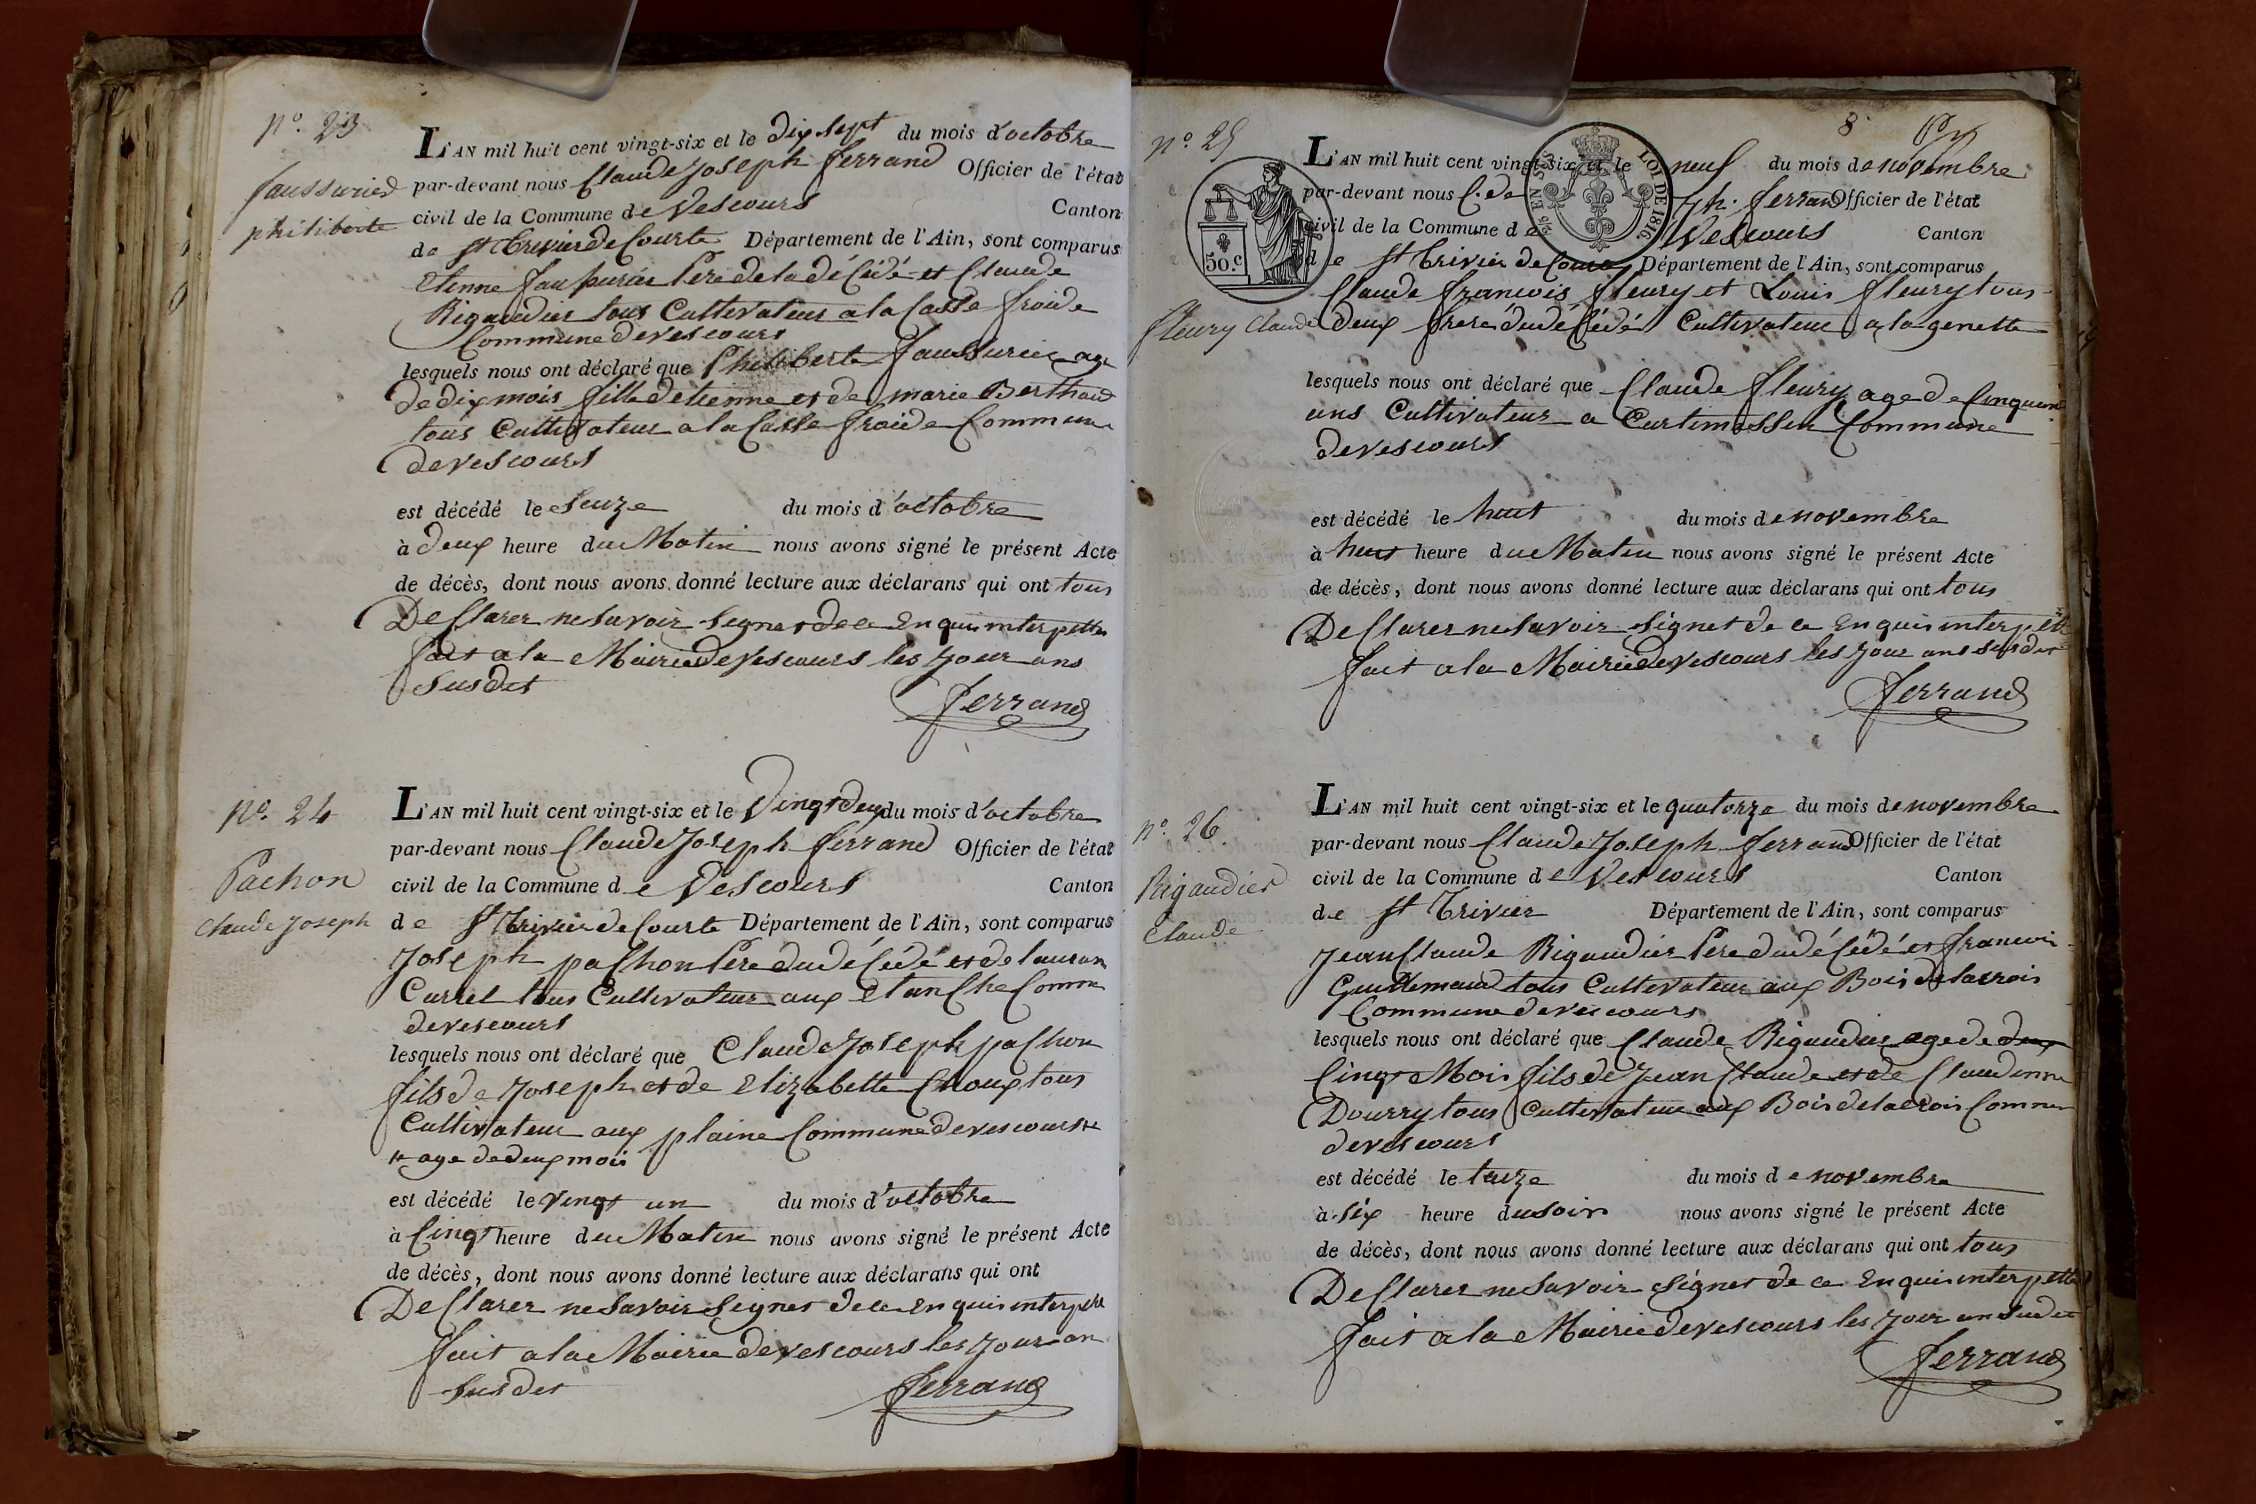 n.º 23
faussurier
philiberte
L'AN mil huit cent vingt-six et le dix sept du mois d'octobre
par-devant nous Claude Joseph ferrand Officier de l'état
civil de la Commune de Vescours Canton
de St Trivier de Courte Département de l'Ain, sont comparus
Etienne faussurier Pere de la décédé et Claude
Rigaudier tous Cultivateur a la Casse froide
Commune de vescours
lesquels nous ont déclaré que Philiberte faussurier age
de dix mois fille detienne et de marie Berthaud
tous Cultivateur a la Casse froide Commune
de vescours
est décédé le seuze du mois d'octobre
à deux heure du Matin nous avons signé le présent Acte
de décès, dont nous avons donné lecture aux déclarans qui ont tous
De Clarer ne savoir signer de ce En quis interpelles
fait a la Mairie de Vescours les jour ans
susdet
ferrand
n.º 24
Pachon
Claude Joseph
L'AN mil huit cent vingt-six et le Vingt deux du mois d'octobre
par-devant nous Claude Joseph ferrand Officier de l'état
civil de la Commune de Vescours Canton
de St Trivier de Courte Département de l'Ain, sont comparus
Joseph pachon Pere du décédé et de lauran
Carrel tous Cultivateur aux Etanche Comme
de vescours
lesquels nous ont déclaré que Claude Joseph pachon
fils de Joseph et de Elizabette Choux tous
Cultivateur aux plaine Commune de vescours
age de deux mois
est décédé le vingt un du mois d'octobre
à Cinq heure du Matin nous avons signé le présent Acte
de décès, dont nous avons donné lecture aux déclarans qui ont
De Clarer ne savoir signer de ce En quis interpelle
fait a la Mairie de vescours les jour an
susdet
ferrand
8
n.º 25
fleury Claude
50.C
EN SUS
LOI DE 1816
L'AN mil huit cent vingt-six et le neuf du mois de novembre
par-devant nous C. de Jh. ferrand Officier de l'état
civil de la Commune de Vescours Canton
de St Trivier de Courte Département de l'Ain, sont comparus
Claude francois fleury et Louis fleury tous
deux frere du décédé Cultivateur a la genette
lesquels nous ont déclaré que Claude fleury age de Cinquante
ans Cultivateur a Curtimassin Commune
de vescours
est décédé le huit du mois de novembre
à huit heure du Matin nous avons signé le présent Acte
de décès, dont nous avons donné lecture aux déclarans qui ont tous
De Clarer ne savoir signer de ce En quis interpelle
fait a la Mairie de Vescours les jour ans susdet
ferrand
n.º 26
Rigaudier
Claude
L'AN mil huit cent vingt-six et le quatorze du mois de novembre
par-devant nous Claude Joseph ferrand Officier de l'état
civil de la Commune de Vescours Canton
de St Trivier Département de l'Ain, sont comparus
Jean Claude Rigaudier Pere du décédé et francois
tous Cultivateur aux Bois de lacrois
Commune de vescours
lesquels nous ont déclaré que Claude Rigaudier age de deux
Cinq Mois fils de Jean Claude et de Claudinne
Dourry tous Cultivateur aux Bois de lacrois Commune
de vescours
est décédé le treize du mois de novembre
à six heure du soir nous avons signé le présent Acte
de décès, dont nous avons donné lecture aux déclarans qui ont tous
De Clarer ne savoir signer de ce En quis interpelle
fait a la Mairie de vescours les jour an sudet
ferrand